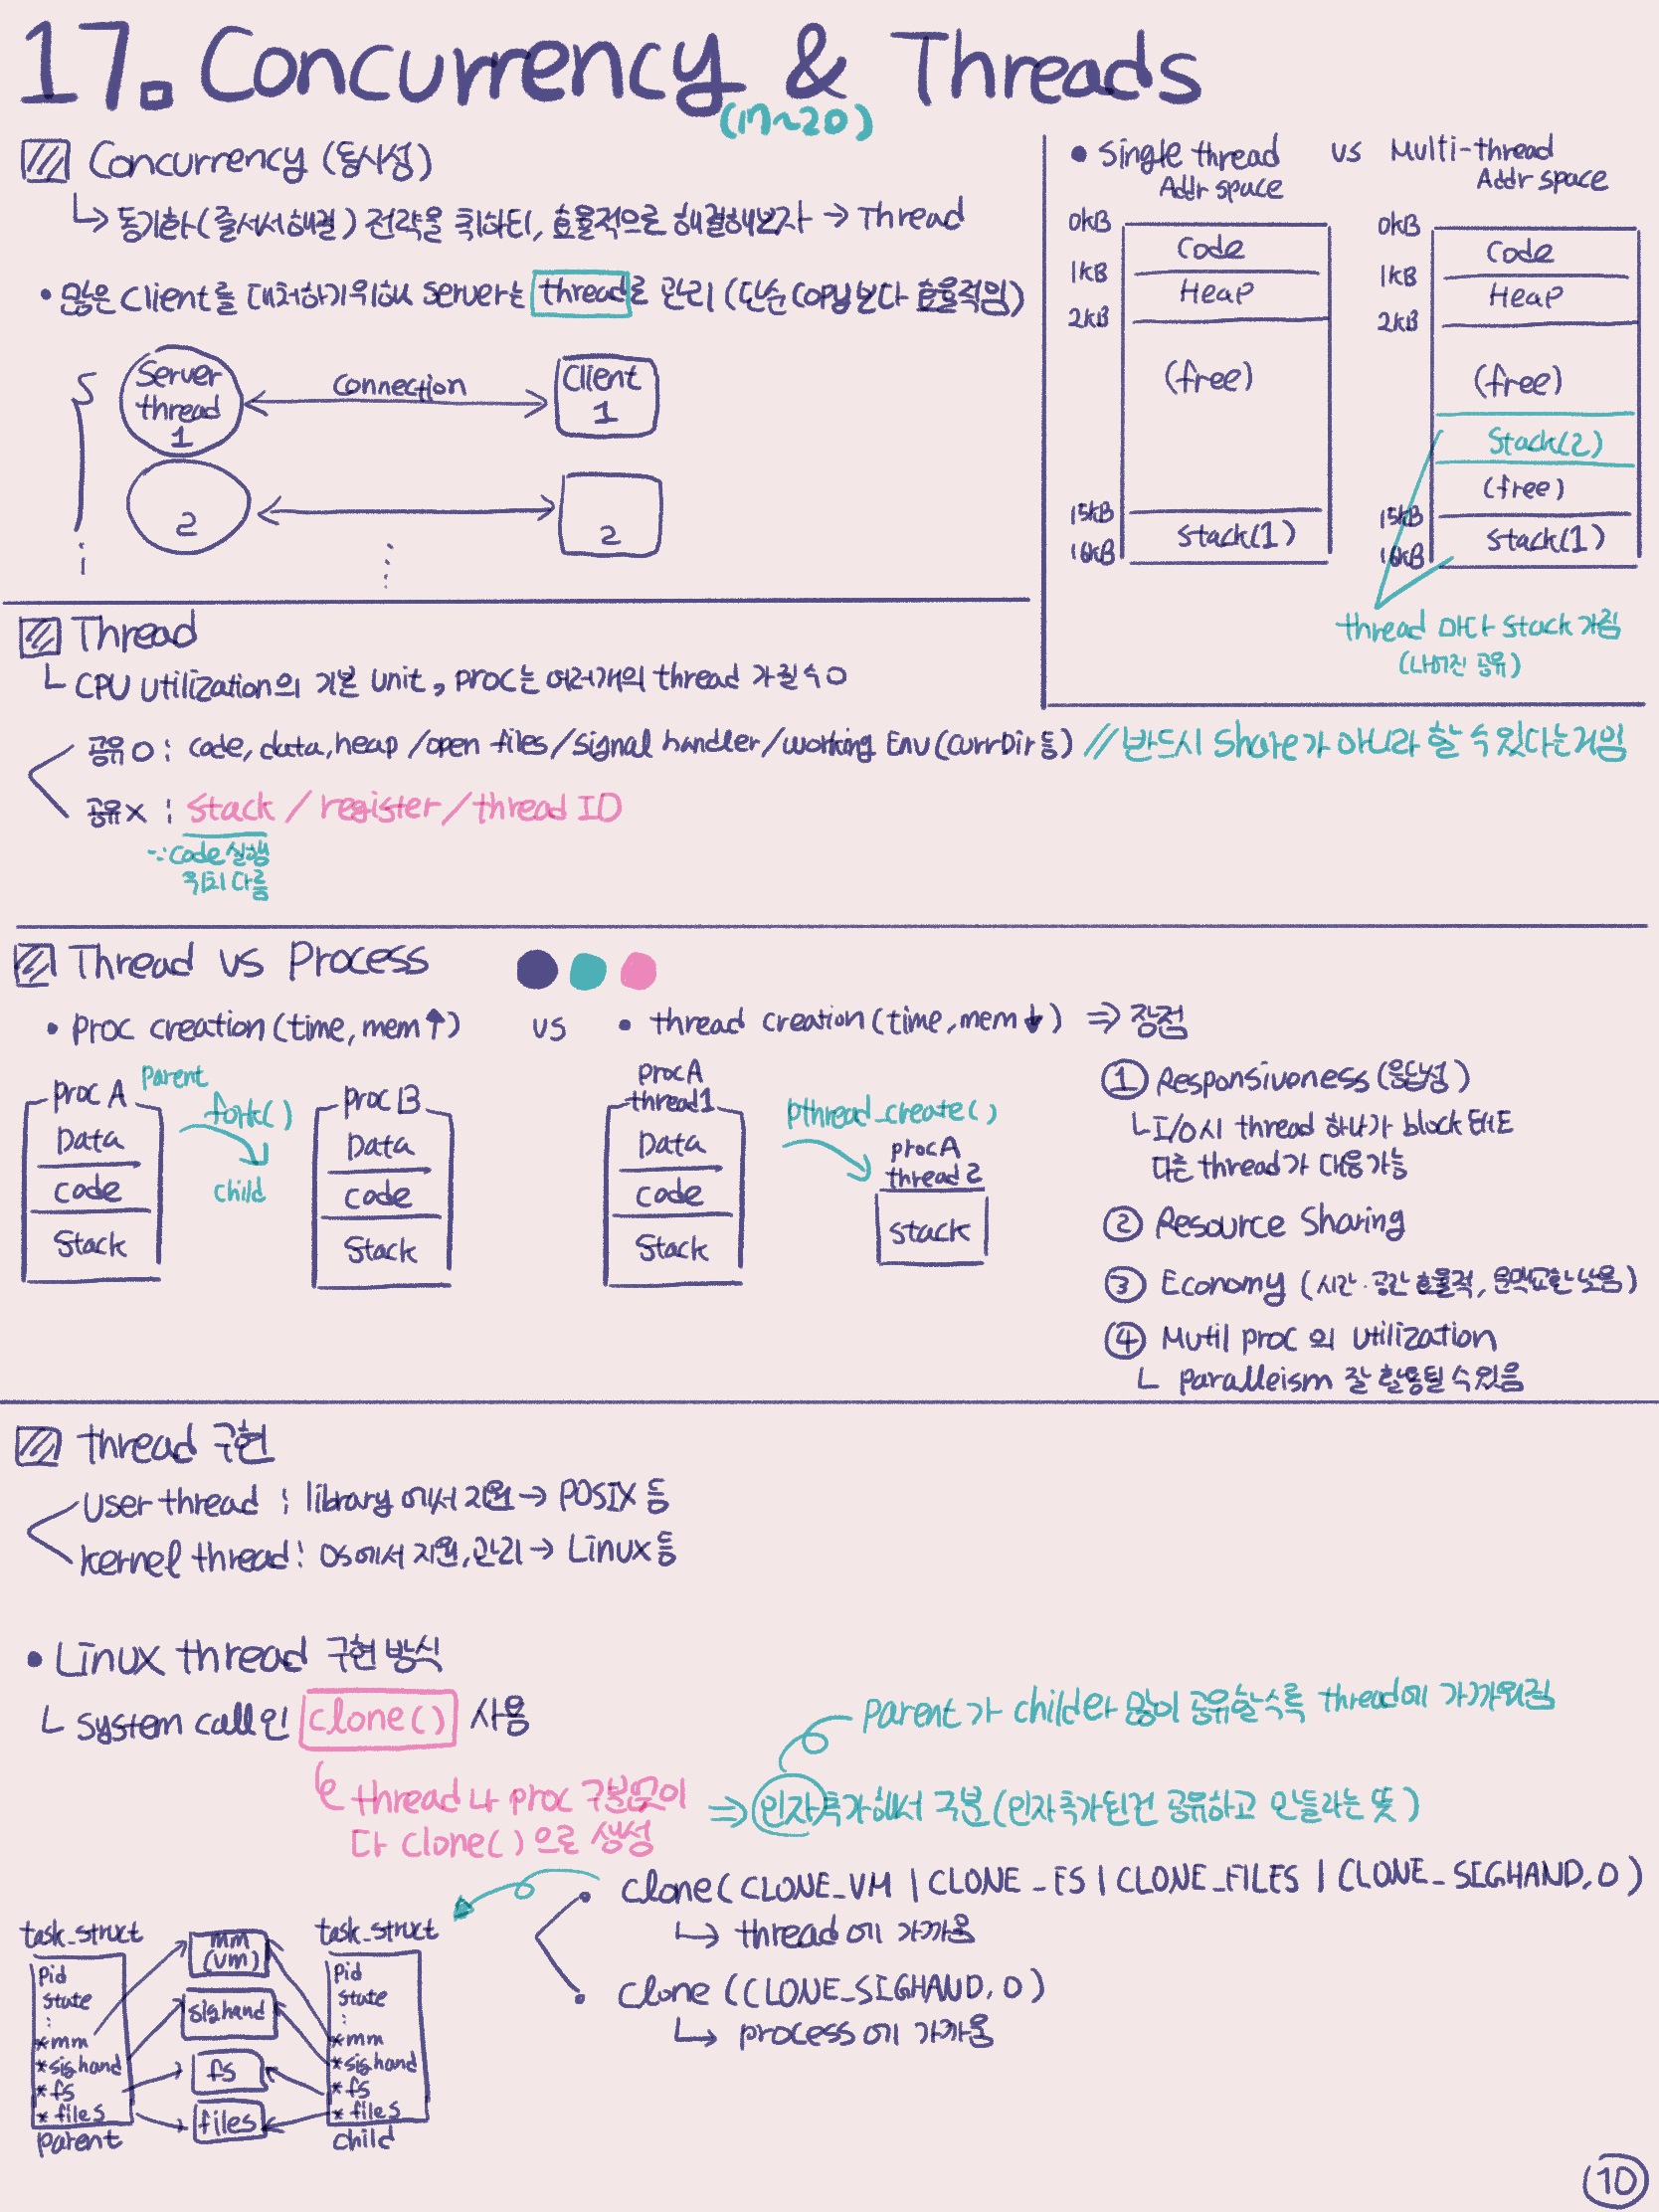 17. Concurrency & Threads
(17~20)
Concurrency (동시성)
↳ 동기화(줄서서해결) 전략을 취하되, 효율적으로 해결해보자 → Thread
• 많은 Client를 대처하기위해 server는 thread로 관리 (단순 copy보다 효율적임)
Server thread 1
Connection
Client 1
2
2
• Single thread Addr space vs Multi-thread Addr space
0kB
Code
1kB
Heap
2kB
(free)
15kB
Stack(1)
16kB
0kB
Code
1kB
Heap
2kB
(free)
Stack(2)
(free)
15kB
Stack(1)
16kB
thread 마다 stack 가짐
(나머진 공유)
Thread
└ CPU utilization의 기본 unit, proc는 여러개의 thread 가질수 O
공유 O : code, data, heap / open files / signal handler / working Env (currDir 등) // 반드시 share가 아니라 할 수 있다는거임
공유 X : stack / register / thread ID
∵ code 실행
위치 다름
Thread vs Process
• proc creation (time, mem↑) vs • thread creation (time, mem↓) ⇒ 장점
proc A
Data
code
Stack
parent
fork()
child
proc B
Data
code
Stack
proc A
thread1
Data
code
Stack
pthread_create()
proc A
thread 2
stack
① Responsiveness (응답성)
└ I/O시 thread 하나가 block 돼도
다른 thread가 대응가능
② Resource Sharing
③ Economy (시간·공간 효율적, 문맥교환 낮음)
④ Mutil proc 의 utilization
└ paralleism 잘 활용될 수 있음
thread 구현
user thread : library 에서 지원 → POSIX 등
kernel thread : OS에서 지원, 관리 → Linux 등
• Linux thread 구현 방식
└ system call인 clone() 사용
parent 가 child와 많이 공유할수록 thread에 가까워짐
thread나 proc 구분없이
다 clone()으로 생성
⇒ 인자추가해서 구분 (인자추가된건 공유하고 만들라는 뜻)
• clone(CLONE_VM | CLONE_FS | CLONE_FILES | CLONE_SIGHAND, 0)
↳ thread 에 가까움
• clone (CLONE_SIGHAND, 0)
↳ process 에 가까움
task_struct
pid
state
⋮
*mm
*sighand
*fs
*files
parent
mm
(vm)
sighand
fs
files
task_struct
pid
state
⋮
*mm
*sighand
*fs
*files
child
10